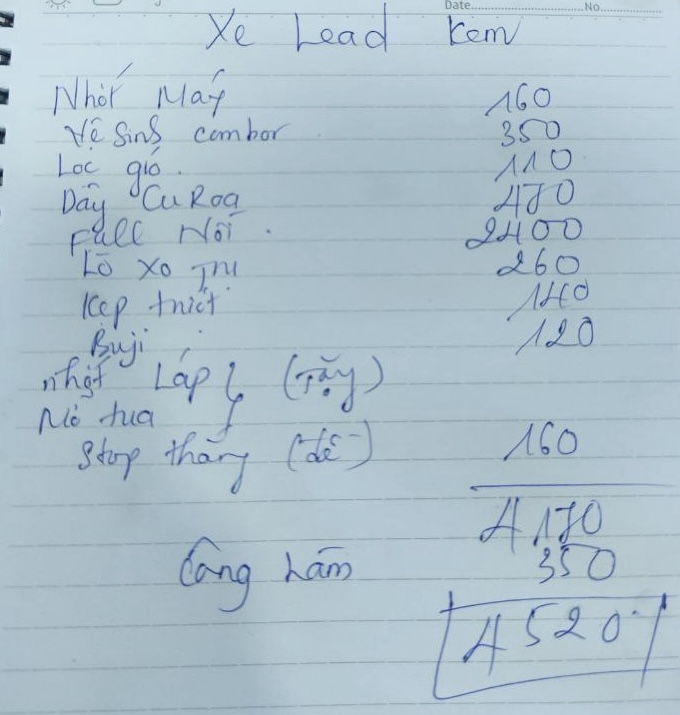 Date.....................No..........
Xe Lead kem
Nhớt Máy 160
Vệ Sinh combor 350
Lọc gió. 110
Dây CuRoa 470
Full Nồi. 2400
Lò Xo Trụ 260
Kẹp thiết 140
Buji 120
nhớt Láp } (Tặng)
Mỏ tua
Stop thắng (đề) 160
4170
Công Làm 350
4520